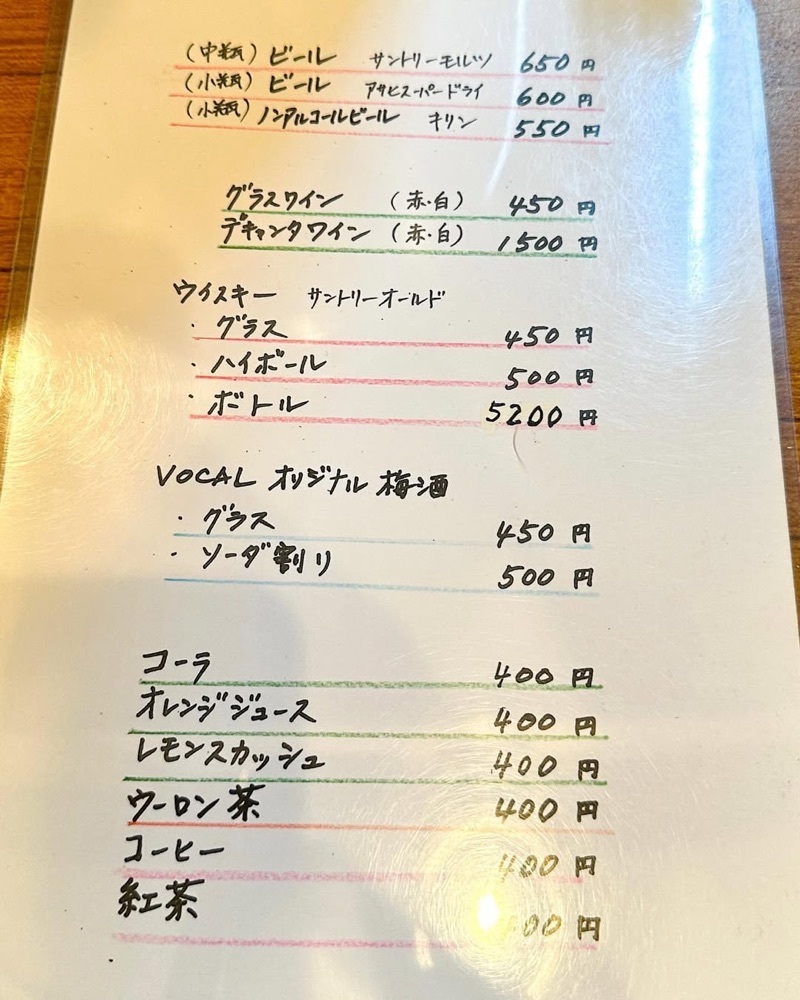 (中瓶) ビール サントリーモルツ 650円
(小瓶) ビール アサヒスーパードライ 600円
(小瓶) ノンアルコールビール キリン 550円
グラスワイン (赤・白) 450円
デキャンタワイン (赤・白) 1500円
ウイスキー サントリーオールド
・グラス 450円
・ハイボール 500円
・ボトル 5200円
VOCAL オリジナル 梅酒
・グラス 450円
・ソーダ割り 500円
コーラ 400円
オレンジジュース 400円
レモンスカッシュ 400円
ウーロン茶 400円
コーヒー 400円
紅茶 円